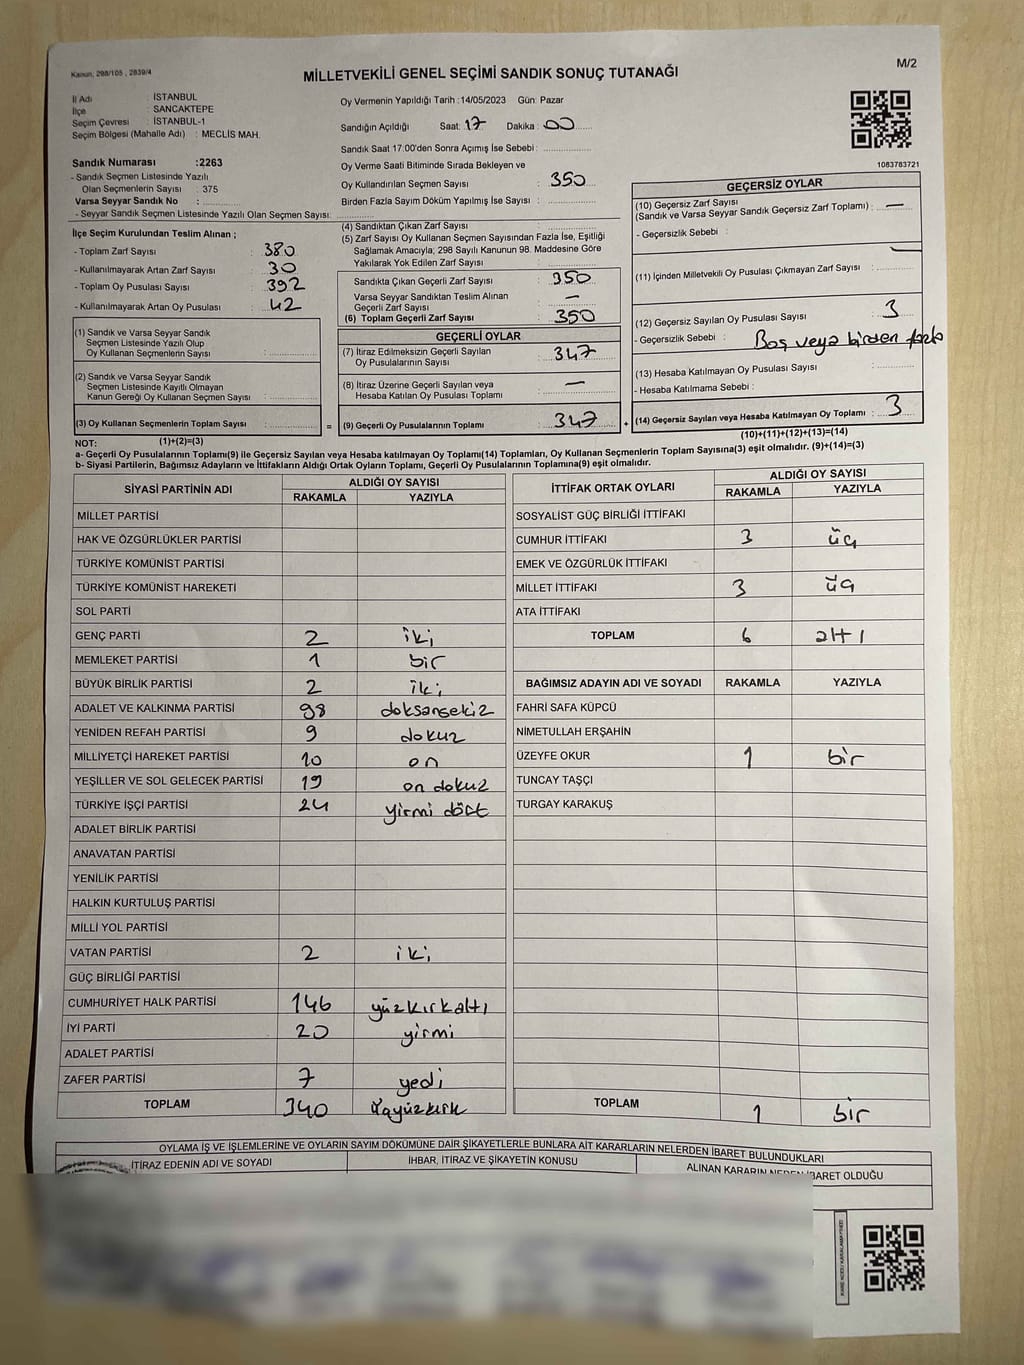 Kanun, 298/105 , 2839/4
M/2
MİLLETVEKİLİ GENEL SEÇİMİ SANDIK SONUÇ TUTANAĞI
İl Adı : İSTANBUL
İlçe : SANCAKTEPE
Seçim Çevresi : İSTANBUL-1
Seçim Bölgesi (Mahalle Adı) : MECLİS MAH.
Sandık Numarası :2263
- Sandık Seçmen Listesinde Yazılı
Olan Seçmenlerin Sayısı : 375
Varsa Seyyar Sandık No :
- Seyyar Sandık Seçmen Listesinde Yazılı Olan Seçmen Sayısı:
Oy Vermenin Yapıldığı Tarih :14/05/2023 Gün: Pazar
Sandığın Açıldığı Saat: 17 Dakika : 00
Sandık Saat 17:00'den Sonra Açımış İse Sebebi :
Oy Verme Saati Bitiminde Sırada Bekleyen ve
Oy Kullandırılan Seçmen Sayısı : 350
Birden Fazla Sayım Döküm Yapılmış İse Sayısı :
1083783721
İlçe Seçim Kurulundan Teslim Alınan ;
- Toplam Zarf Sayısı : 380
- Kullanılmayarak Artan Zarf Sayısı : 30
- Toplam Oy Pusulası Sayısı : 392
- Kullanılmayarak Artan Oy Pusulası : 42
(1) Sandık ve Varsa Seyyar Sandık
Seçmen Listesinde Yazılı Olup
Oy Kullanan Seçmenlerin Sayısı :
(2) Sandık ve Varsa Seyyar Sandık
Seçmen Listesinde Kayıtlı Olmayan
Kanun Gereği Oy Kullanan Seçmen Sayısı :
(3) Oy Kullanan Seçmenlerin Toplam Sayısı :
(4) Sandıktan Çıkan Zarf Sayısı :
(5) Zarf Sayısı Oy Kullanan Seçmen Sayısından Fazla İse, Eşitliği
Sağlamak Amacıyla; 298 Sayılı Kanunun 98. Maddesine Göre
Yakılarak Yok Edilen Zarf Sayısı :
Sandıkta Çıkan Geçerli Zarf Sayısı : 350
Varsa Seyyar Sandıktan Teslim Alınan
Geçerli Zarf Sayısı : —
(6) Toplam Geçerli Zarf Sayısı : 350
GEÇERLİ OYLAR
(7) İtiraz Edilmeksizin Geçerli Sayılan
Oy Pusulalarının Sayısı : 347
(8) İtiraz Üzerine Geçerli Sayılan veya
Hesaba Katılan Oy Pusulası Toplamı : —
= (9) Geçerli Oy Pusulalarının Toplamı : 347 +
GEÇERSİZ OYLAR
(10) Geçersiz Zarf Sayısı
(Sandık ve Varsa Seyyar Sandık Geçersiz Zarf Toplamı) : —
- Geçersizlik Sebebi :
(11) İçinden Milletvekili Oy Pusulası Çıkmayan Zarf Sayısı : —
(12) Geçersiz Sayılan Oy Pusulası Sayısı : 3
- Geçersizlik Sebebi : Boş veya birden fazla
(13) Hesaba Katılmayan Oy Pusulası Sayısı :
- Hesaba Katılmama Sebebi :
(14) Geçersiz Sayılan veya Hesaba Katılmayan Oy Toplamı : 3
NOT: (1)+(2)=(3) (10)+(11)+(12)+(13)=(14)
a- Geçerli Oy Pusulalarının Toplamı(9) ile Geçersiz Sayılan veya Hesaba katılmayan Oy Toplamı(14) Toplamları, Oy Kullanan Seçmenlerin Toplam Sayısına(3) eşit olmalıdır. (9)+(14)=(3)
b- Siyasi Partilerin, Bağımsız Adayların ve İttifakların Aldığı Ortak Oyların Toplamı, Geçerli Oy Pusulalarının Toplamına(9) eşit olmalıdır.
SİYASİ PARTİNİN ADI ALDIĞI OY SAYISI
RAKAMLA YAZIYLA
MİLLET PARTİSİ
HAK VE ÖZGÜRLÜKLER PARTİSİ
TÜRKİYE KOMÜNİST PARTİSİ
TÜRKİYE KOMÜNİST HAREKETİ
SOL PARTİ
GENÇ PARTİ 2 iki
MEMLEKET PARTİSİ 1 bir
BÜYÜK BİRLİK PARTİSİ 2 iki
ADALET VE KALKINMA PARTİSİ 98 doksansekiz
YENİDEN REFAH PARTİSİ 9 dokuz
MİLLİYETÇİ HAREKET PARTİSİ 10 on
YEŞİLLER VE SOL GELECEK PARTİSİ 19 on dokuz
TÜRKİYE İŞÇİ PARTİSİ 24 yirmi dört
ADALET BİRLİK PARTİSİ
ANAVATAN PARTİSİ
YENİLİK PARTİSİ
HALKIN KURTULUŞ PARTİSİ
MİLLİ YOL PARTİSİ
VATAN PARTİSİ 2 iki
GÜÇ BİRLİĞİ PARTİSİ
CUMHURİYET HALK PARTİSİ 146 yüzkırkaltı
İYİ PARTİ 20 yirmi
ADALET PARTİSİ
ZAFER PARTİSİ 7 yedi
TOPLAM 340 üçyüzkırk
İTTİFAK ORTAK OYLARI ALDIĞI OY SAYISI
RAKAMLA YAZIYLA
SOSYALİST GÜÇ BİRLİĞİ İTTİFAKI
CUMHUR İTTİFAKI 3 üç
EMEK VE ÖZGÜRLÜK İTTİFAKI
MİLLET İTTİFAKI 3 üç
ATA İTTİFAKI
TOPLAM 6 altı
BAĞIMSIZ ADAYIN ADI VE SOYADI RAKAMLA YAZIYLA
FAHRİ SAFA KÜPCÜ
NİMETULLAH ERŞAHİN
ÜZEYFE OKUR 1 bir
TUNCAY TAŞÇI
TURGAY KARAKUŞ
TOPLAM 1 bir
OYLAMA İŞ VE İŞLEMLERİNE VE OYLARIN SAYIM DÖKÜMÜNE DAİR ŞİKAYETLERLE BUNLARA AİT KARARLARIN NELERDEN İBARET BULUNDUKLARI
İTİRAZ EDENİN ADI VE SOYADI İHBAR, İTİRAZ VE ŞİKAYETİN KONUSU ALINAN KARARIN NEDEN İBARET OLDUĞU